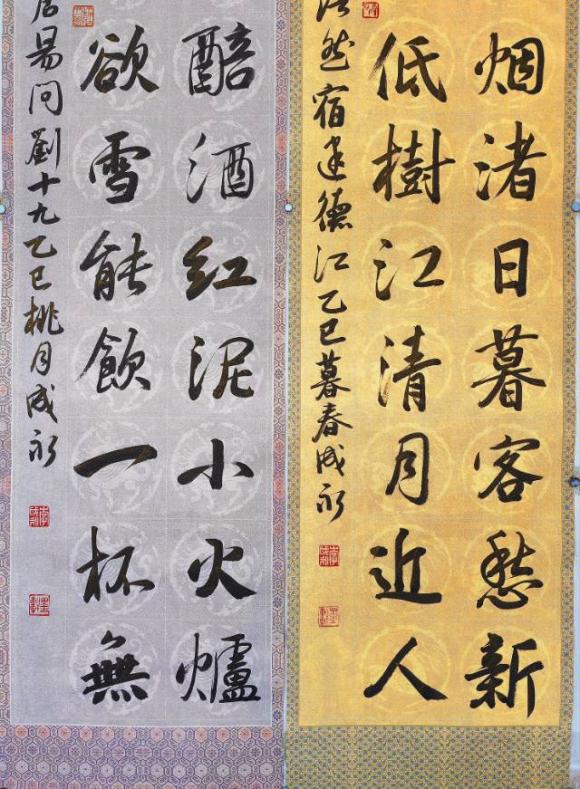 烟渚日暮客愁新
低樹江清月近人
浩然宿建德江乙巳暮春成永
醅酒红泥小火爐
欲雪能飲一杯無
居易问劉十九乙巳桃月成永